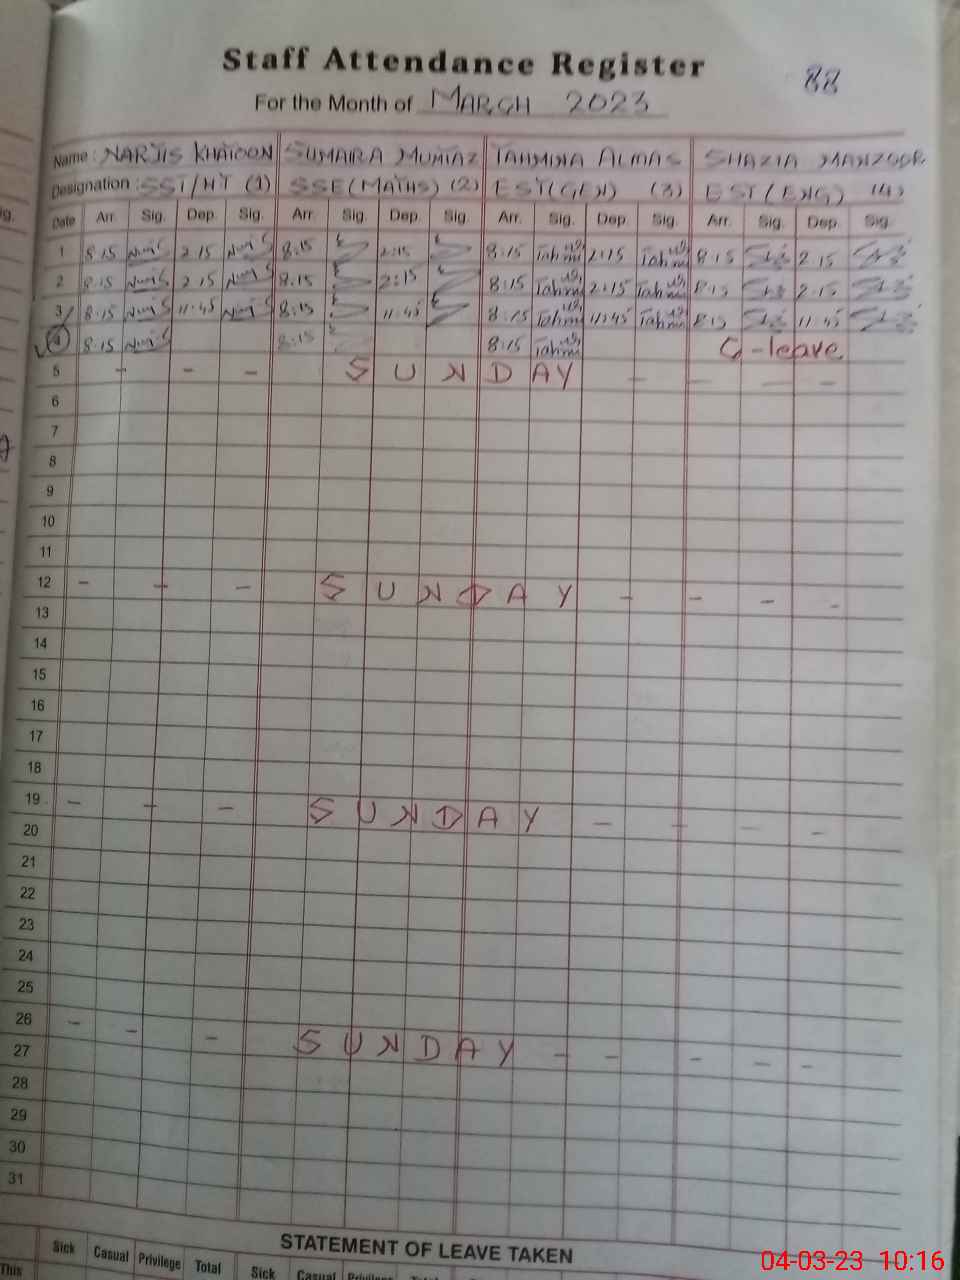 Staff Attendance Register
88
For the Month of MARCH 2023
Name : NARJIS KHATOON SUMAIRA MUMTAZ TAHMINA ALMAS SHAZIA MANZOOR
Designation : SST/HT (1) SSE (MATHS) (2) EST (GEN) (3) EST (ENG) (4)
Date Arr. Sig. Dep. Sig. Arr. Sig. Dep. Sig. Arr. Sig. Dep. Sig. Arr. Sig. Dep. Sig.
1 8:15 2:15 8:15 2:15 8:15 Tahmina 2:15 Tahmina 8:15 2:15
2 8:15 2:15 8:15 2:15 8:15 Tahmina 2:15 Tahmina 8:15 2:15
3 8:15 11:45 8:15 11:45 8:15 Tahmina 11:45 Tahmina 8:15 11:45
4 8:15 8:15 8:15 Tahmina C-leave
5 - - - SUNDAY - - - -
6
7
8
9
10
11
12 - - - SUNDAY - - - -
13
14
15
16
17
18
19 - - - SUNDAY - - - -
20
21
22
23
24
25
26 - - - SUNDAY - - - - -
27
28
29
30
31
STATEMENT OF LEAVE TAKEN
Sick Casual Privilege Total Sick Casual Privilege Total
This
04-03-23 10:16